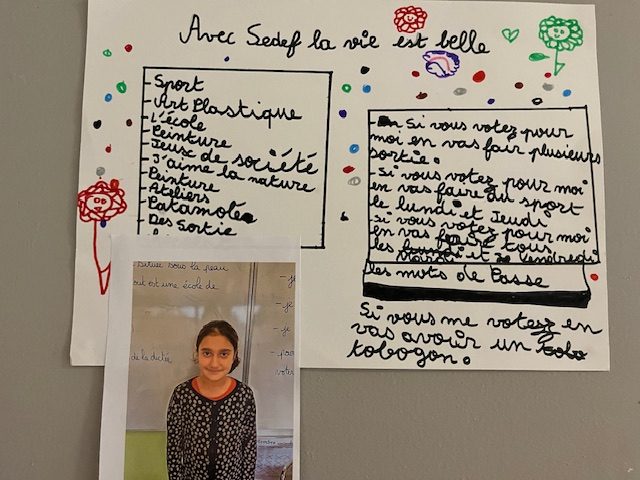 Avec Sedef la vie est belle
- Sport
- Art Plastique
- L'école
- Peinture
- Jeux de société
- J'aime la nature
- Peinture
- Ateliers
- Patamode
- Des Sortie
- Si vous votez pour
moi en vas fair plusieurs
sortie.
- Si vous votez pour moi
en vas faire du sport
le lundi et Jeudi
Si vous votez pour moi
en vas faire tous
les Mardi et le vendredi
les mots de Passe
Si vous me votez en
vas avoir un
tobogon.
sous la peau
out est une école de
- je
- je
- je
de la dictée
- pour
votes